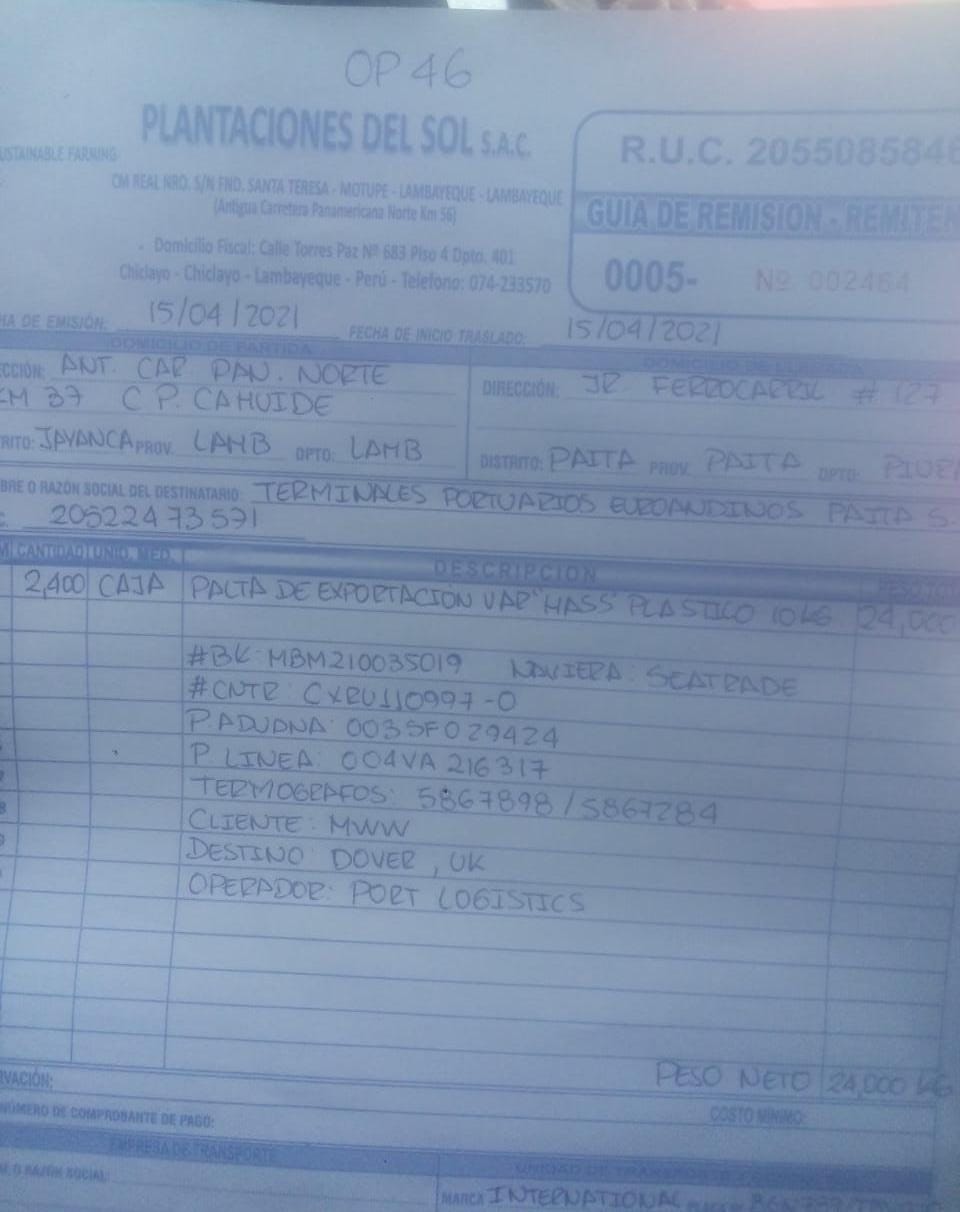 OP 46
PLANTACIONES DEL SOL S.A.C.
USTAINABLE FARNING
CM REAL NRO. S/N FND. SANTA TERESA - MOTUPE - LAMBAYEQUE - LAMBAYEQUE
(Antigua Carretera Panamericana Norte Km 56)
Domicilio Fiscal: Calle Torres Paz Nº 683 Piso 4 Dpto. 401
Chiclayo - Chiclayo - Lambayeque - Perú - Telefono: 074-233570
R.U.C. 2055085846
GUIA DE REMISION - REMITEN
0005- Nº 002464
HA DE EMISIÓN: 15/04/2021 FECHA DE INICIO TRASLADO: 15/04/2021
DOMICILIO DE PARTIDA
ECCIÓN: ANT. CAR PAN. NORTE
KM 37 C P. CAHUIDE
TRITO: JAYANCA PROV. LAMB DPTO: LAMB
DOMICILIO DE LLEGADA
DIRECCIÓN: JR FERROCARRIL # 127
DISTRITO: PAITA PROV. PAITA DPTO: PIURA
BRE O RAZÓN SOCIAL DEL DESTINATARIO: TERMINALES PORTUARIOS EUROANDINOS PAITA S.
C. 20522473571
M CANTIDAD UNID. MED. DESCRIPCION PESO
2,400 CAJA PALTA DE EXPORTACION VAR "HASS" PLASTICO 10 KG 24,000
#BK: MBM210035019 NAVIERA: SEATRADE
#CNTR: CXRU110997-0
P. ADUANA: 0035F029424
P LINEA: 004VA 216317
TERMOGRAFOS: 5867898 / 5867284
CLIENTE: MWW
DESTINO DOVER, UK
OPERADOR: PORT LOGISTICS
PESO NETO 24,000 KG
VACIÓN:
NÚMERO DE COMPROBANTE DE PAGO: COSTO MÍNIMO:
EMPRESA DE TRANSPORTE
O RAZÓN SOCIAL:
UNIDAD DE TRANSPORTE
MARCA INTERNATIONAL